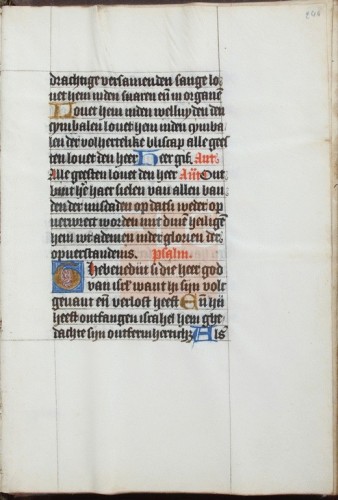 drachtige versamenden sange lo
uet hem inden snaren en̄ in organē
Louet hem inden welluydenden
cymbalen louet hem inden cymba
len der volherteliker bliscap alle gees
ten louet den heer Heer gif. Ant.
Alle geesten louet den heer Ont
bint hē haer sielen van allen ban
den der misdaden op datsi weder op
verwect worden mit dinen heiligen
hem verademen inder glorien der
opuerstandenis. Psalm.
Ghebenedijt si die heer god
van isrł want hi sijn volc
genaut en̄ verlost heeft En̄ hij
heeft ontfangen israhel hem ghe
dachte sijn ontfermherticħ Als